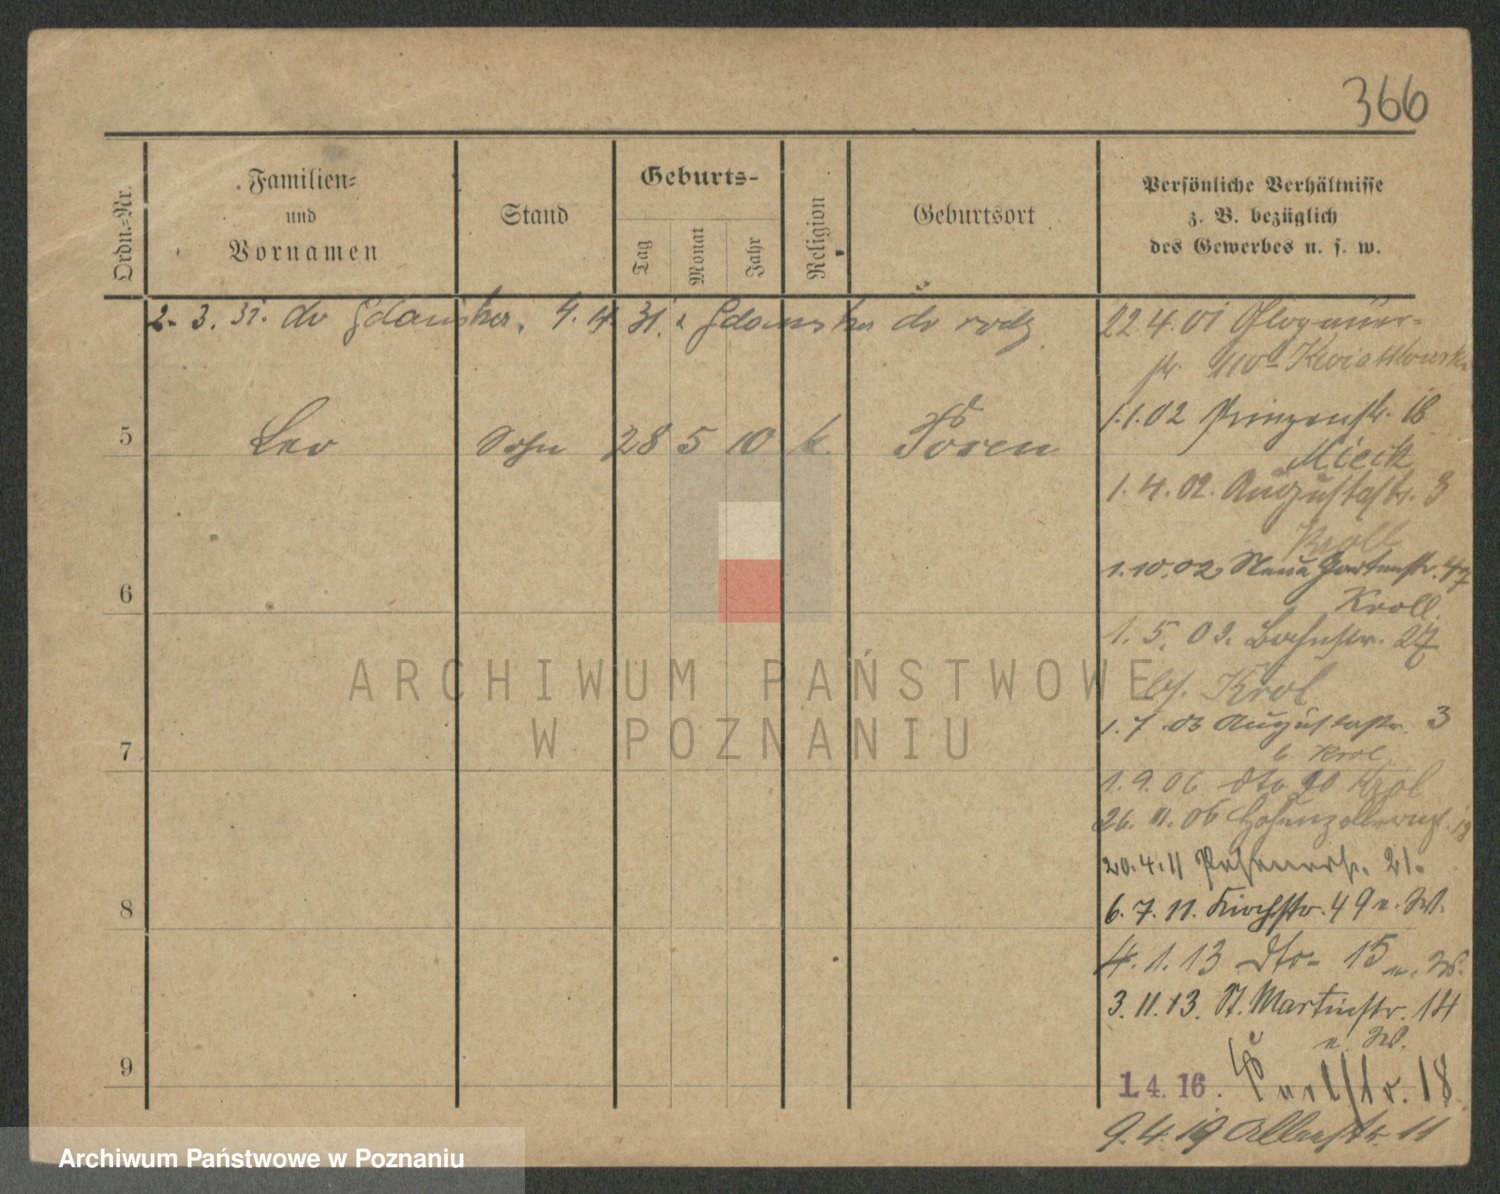 366
Ordn.-Nr.
Familien-
und
Vornamen
Stand
Geburts-
Tag
Monat
Jahr
Religion
Geburtsort
Persönliche Verhältnisse
z. B. bezüglich
des Gewerbes u. s. w.
2. 3. 31. do Gdańska, 4. 4. 31. z Gdańska do
5 Leo Sohn 28 5 10 k. Posen
6
7
8
9
22.4.01 Glogauer-
str. Kwiatkowski
1.1.02 Prinzenstr. 18
1.4.02. Augustastr. 3
Kroll
1.10.02 Neue Gartenstr.
Kroll
1. 5. 03. Bahnstr. 27
b/. Krol
1. 7 03 Augustastr. 3
b. Krol
1.9.06 dto Krol
26. 11. 06 Hohenzollernstr.
20.4.11 21.
6. 7. 11. Kirchstr. 49 e. W.
4. 1. 13 dto- 15 e. W.
3. 11. 13. St. Martinstr. 14
e. W.
1.4.16. 18
9.4.19 11
ARCHIWUM PAŃSTWOWE
W POZNANIU
Archiwum Państwowe w Poznaniu